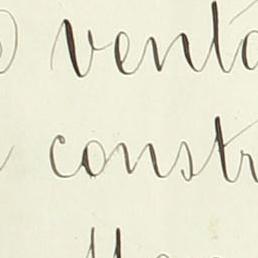 venta
constr